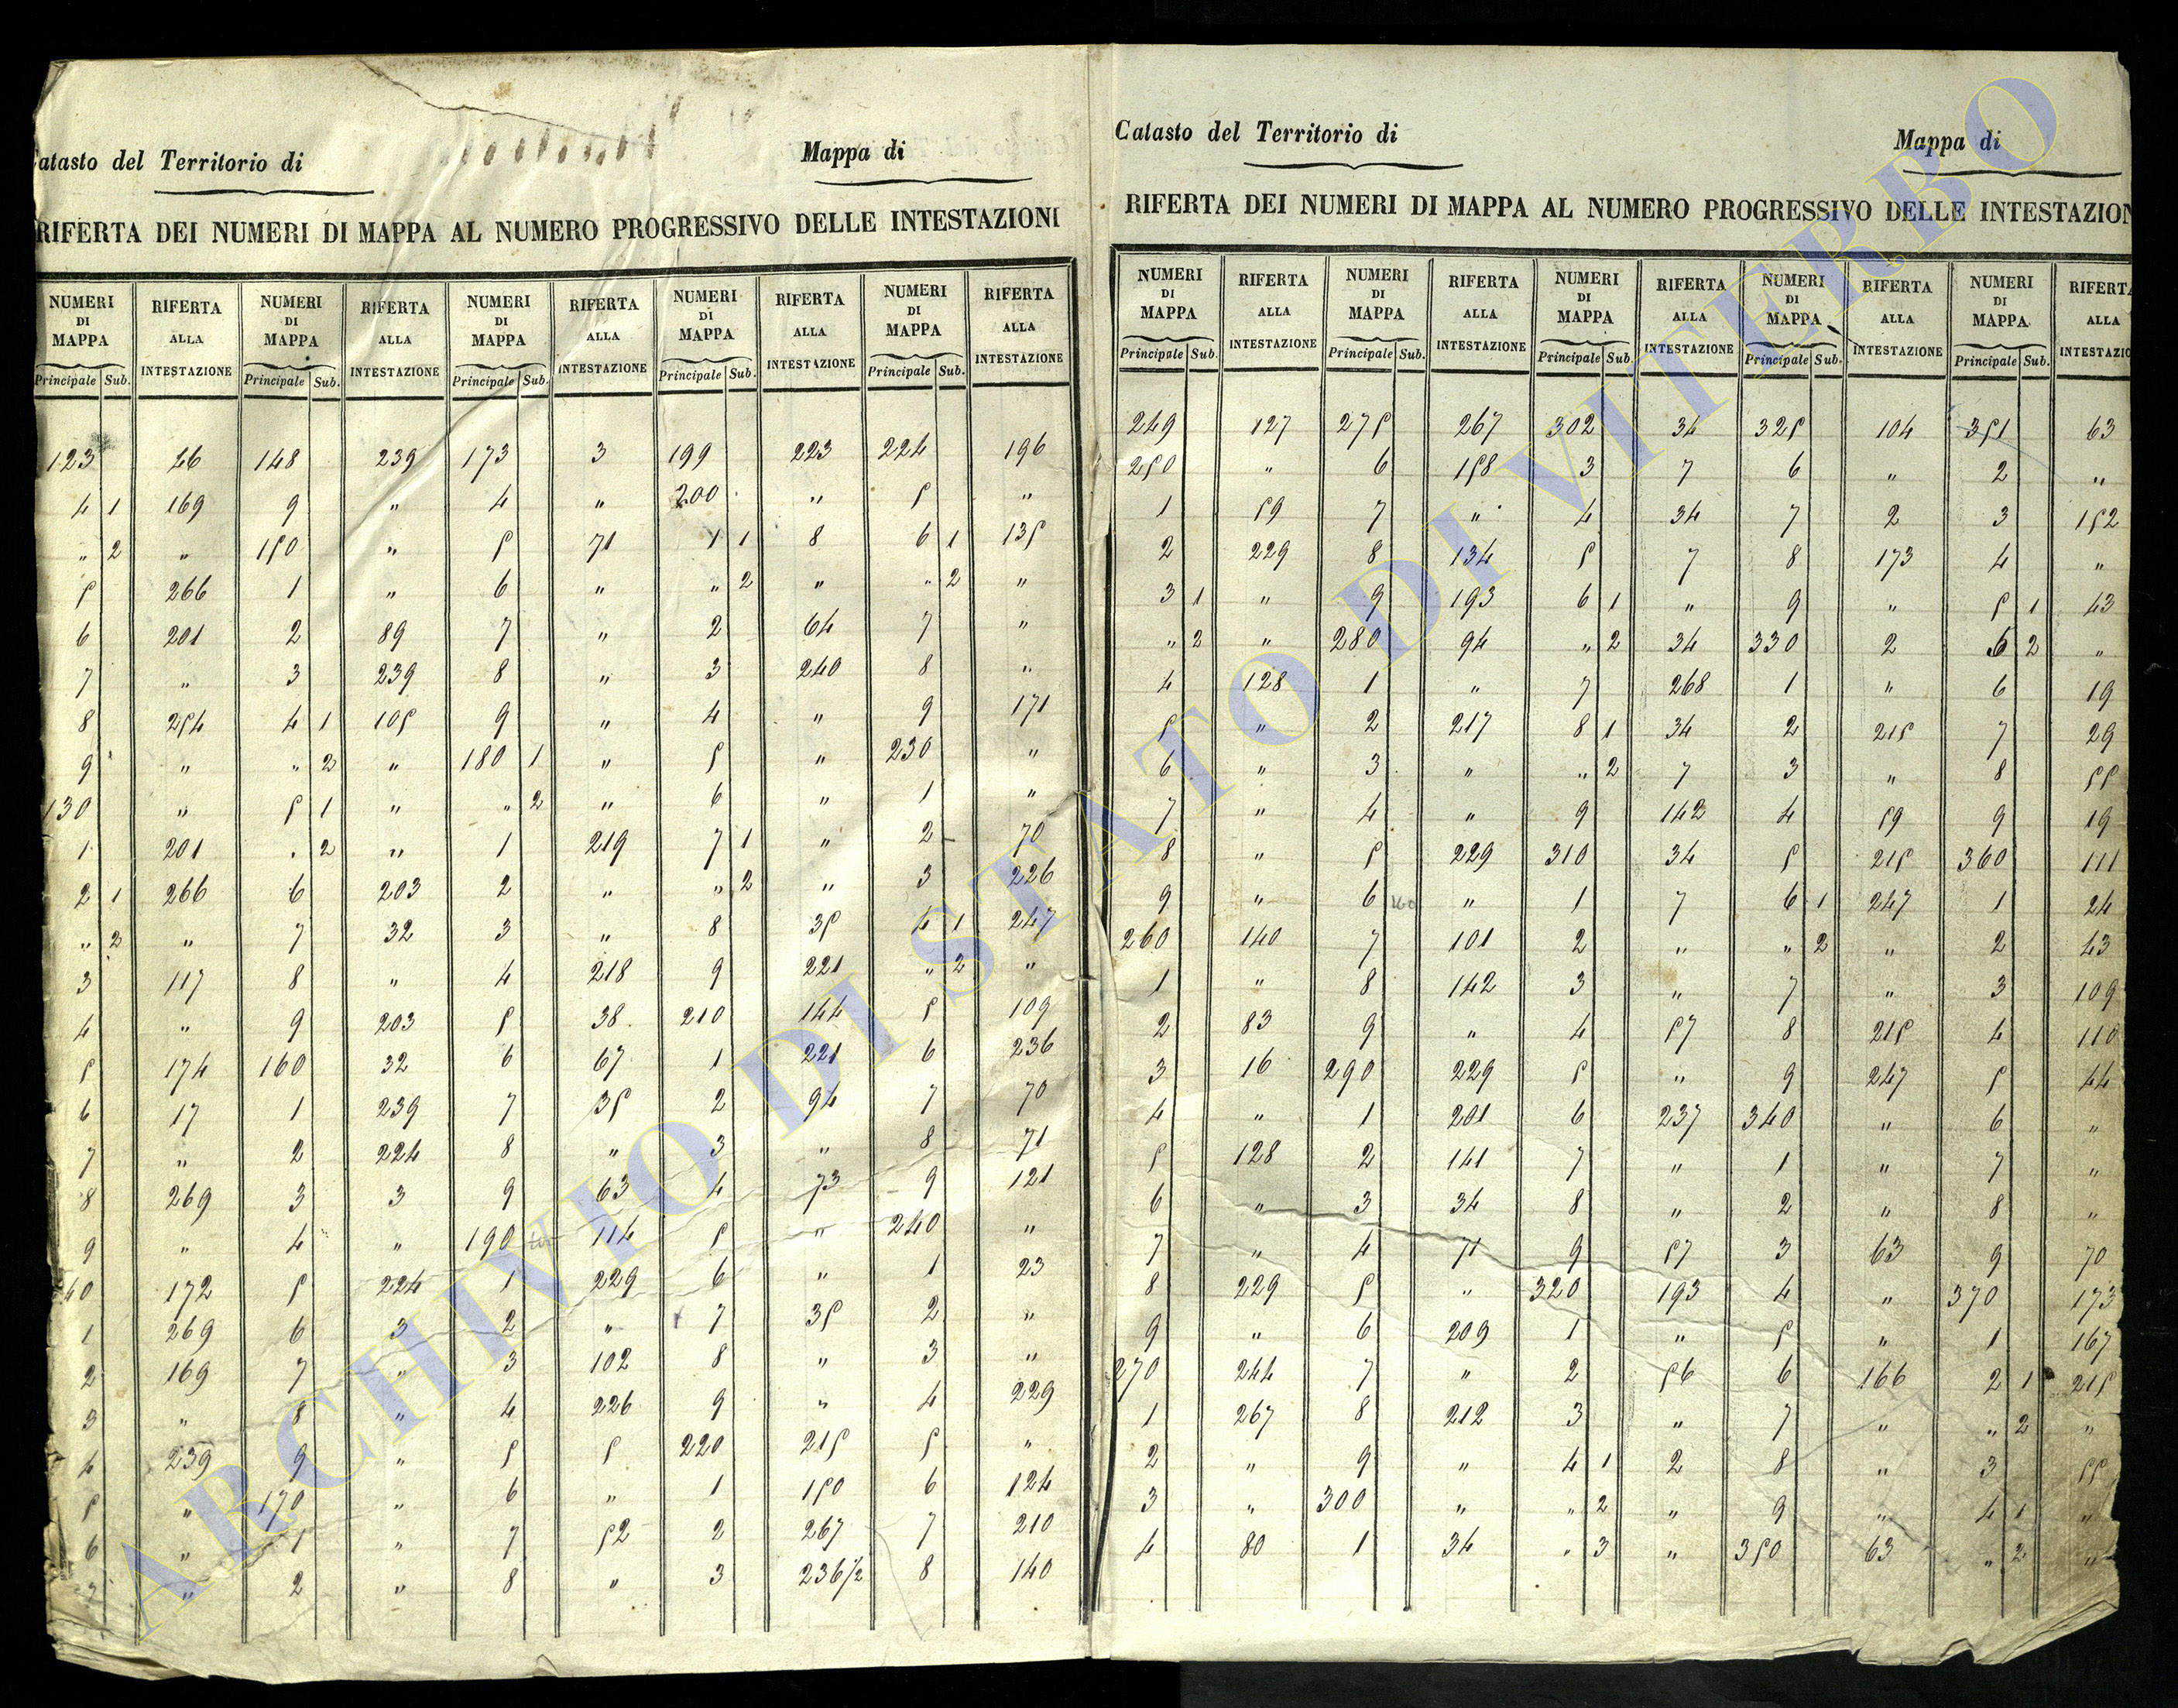 Catasto del Territorio di Mappa di
RIFERTA DEI NUMERI DI MAPPA AL NUMERO PROGRESSIVO DELLE INTESTAZIONI
NUMERI DI MAPPA RIFERTA ALLA INTESTAZIONE NUMERI DI MAPPA RIFERTA ALLA INTESTAZIONE NUMERI DI MAPPA RIFERTA ALLA INTESTAZIONE NUMERI DI MAPPA RIFERTA ALLA INTESTAZIONE NUMERI DI MAPPA RIFERTA ALLA INTESTAZIONE
Principale Sub. Principale Sub. Principale Sub. Principale Sub. Principale Sub.
123 46 148 239 173 3 199 223 224 196
4 1 169 9 " 4 " 200 " 5 "
" 2 " 150 " 5 71 1 1 8 6 1 135
5 266 1 " 6 " " 2 " " 2 "
6 201 2 89 7 " 2 64 7 "
7 " 3 239 8 " 3 240 8 "
8 254 4 1 105 9 " 4 " 9 171
9 " " 2 " 180 1 " 5 " 230 "
130 " 5 1 " " 2 " 6 " 1 "
1 201 " 2 " 1 219 7 1 " 2 70
2 1 266 6 203 2 " " 2 " 3 226
" 2 " 7 32 3 " 8 35 4 1 247
3 117 8 " 4 218 9 221 " 2 "
4 " 9 203 5 38 210 144 5 109
5 174 160 32 6 67 1 221 6 236
6 17 1 239 7 35 2 94 7 70
7 " 2 224 8 " 3 " 8 71
8 269 3 3 9 63 4 73 9 121
9 " 4 " 190 114 5 " 240 "
40 172 5 224 1 229 6 " 1 23
1 269 6 3 2 " 7 35 2 "
2 169 7 " 3 102 8 " 3 "
3 " 8 " 4 226 9 " 4 229
4 239 9 " 5 5 220 215 5 "
5 " 170 " 6 " 1 150 6 124
6 " 1 " 7 52 2 267 7 210
7 " 2 " 8 " 3 236 1/2 8 140
Catasto del Territorio di Mappa di
RIFERTA DEI NUMERI DI MAPPA AL NUMERO PROGRESSIVO DELLE INTESTAZION
NUMERI DI MAPPA RIFERTA ALLA INTESTAZIONE NUMERI DI MAPPA RIFERTA ALLA INTESTAZIONE NUMERI DI MAPPA RIFERTA ALLA INTESTAZIONE NUMERI DI MAPPA RIFERTA ALLA INTESTAZIONE NUMERI DI MAPPA RIFERTA ALLA INTESTAZIO
Principale Sub. Principale Sub. Principale Sub. Principale Sub. Principale Sub.
249 127 275 267 302 34 325 104 351 63
250 " 6 158 3 7 6 " 2 "
1 59 7 " 4 34 7 2 3 152
2 229 8 134 5 7 8 173 4 "
3 1 " 9 193 6 1 " 9 " 5 1 43
" 2 " 280 94 " 2 34 330 2 6 2 "
4 128 1 " 7 268 1 " 6 19
5 " 2 217 8 1 34 2 215 7 29
6 " 3 " " 2 7 3 " 8 55
7 " 4 " 9 142 4 59 9 19
8 " 5 229 310 34 5 215 360 111
9 " 6 160 " 1 7 6 1 247 1 24
260 140 7 101 2 " " 2 " 2 43
1 " 8 142 3 " 7 " 3 109
2 83 9 " 4 57 8 215 4 110
3 16 290 229 5 " 9 247 5 44
4 " 1 201 6 237 340 " 6 "
5 128 2 141 7 " 1 " 7 "
6 " 3 34 8 " 2 " 8 "
7 " 4 71 9 57 3 63 9 70
8 229 5 " 320 193 4 " 370 173
9 " 6 209 1 " 5 " 1 167
270 244 7 " 2 56 6 166 2 1 215
1 267 8 212 3 " 7 " " 2 "
2 " 9 " 4 1 2 8 " 3 55
3 " 300 " " 2 " 9 " 4 1 "
4 80 1 34 " 3 " 350 63 " 2 "
ARCHIVIO DI STATO DI VITERBO